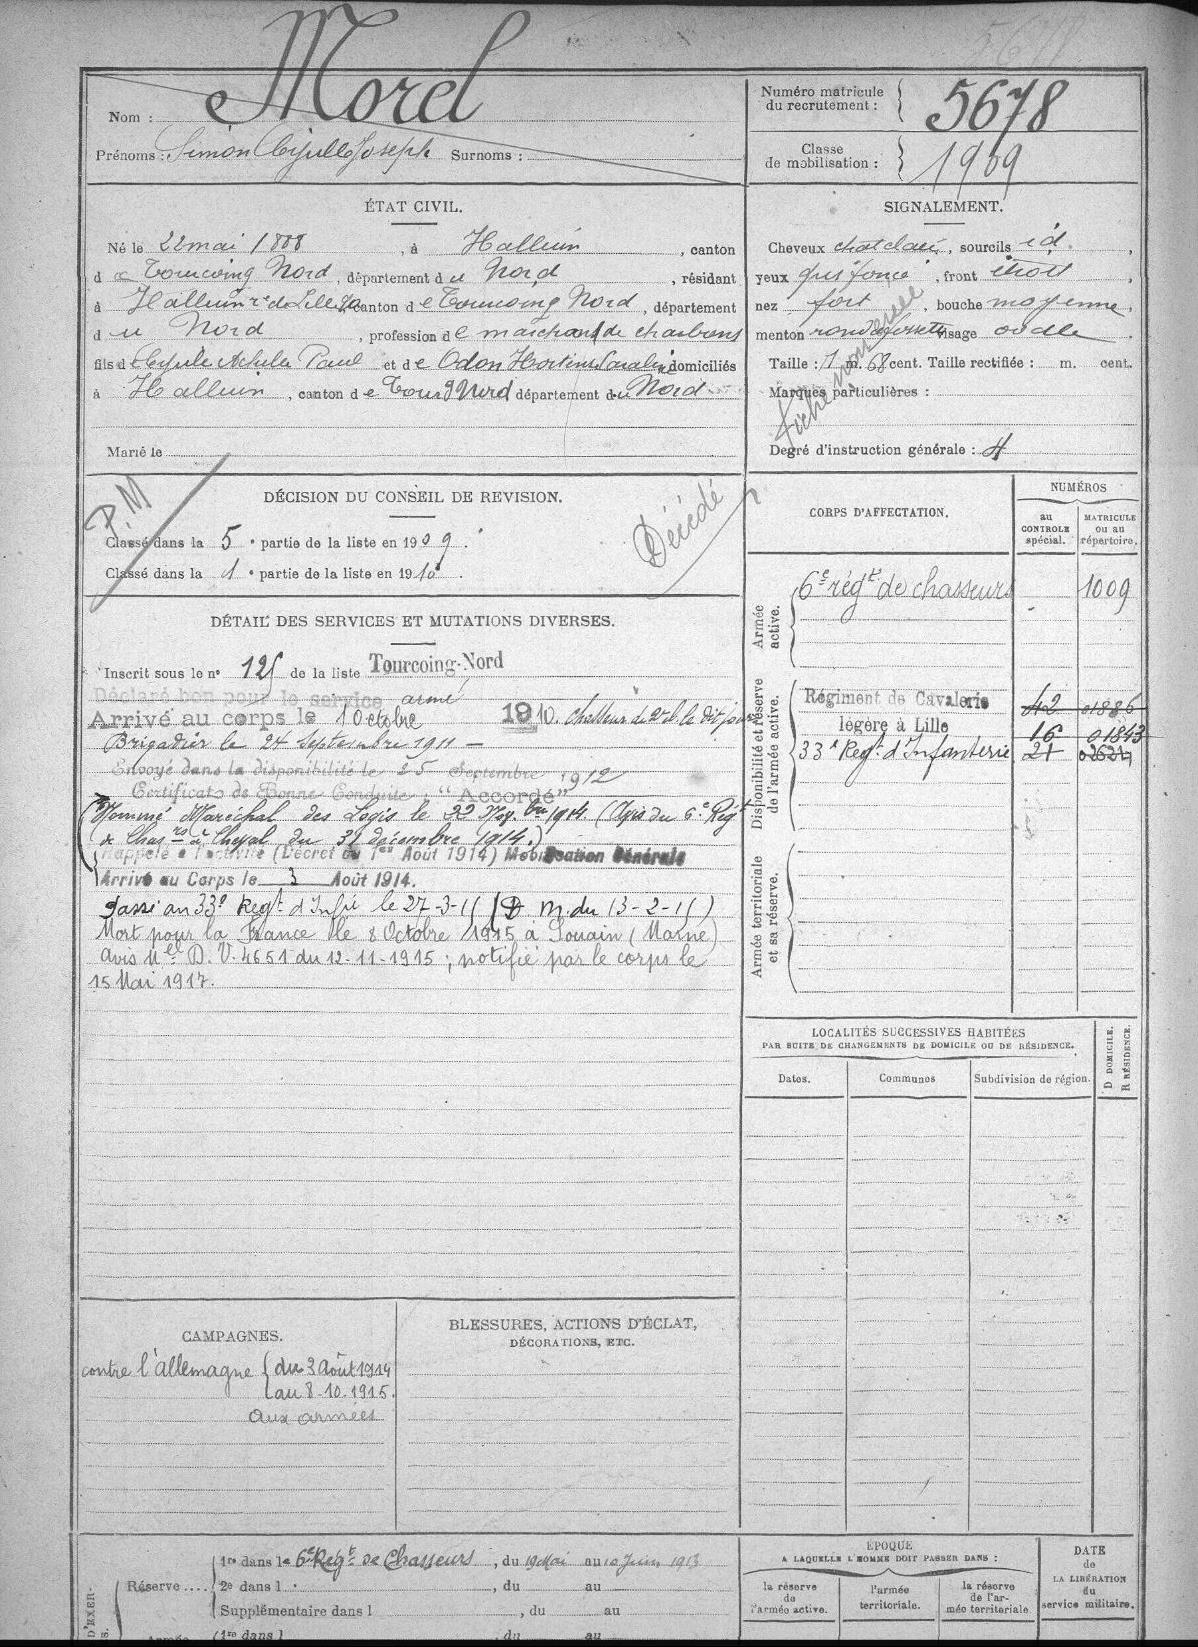 5678
Nom : Morel
Prénoms : Simon Joseph Surnoms :
Numéro matricule
du recrutement : 5678
Classe
de mobilisation : 1909
ÉTAT CIVIL.
Né le 22 mai 1888, à Halluin, canton
de Tourcoing Nord, département du Nord, résidant
à Halluin r. de Lille, canton de Tourcoing Nord, département
du Nord, profession de marchand de charbons
fils d Achille Paul et de Odon domiciliés
à Halluin, canton de Tourg Nord département du Nord
Marié le
SIGNALEMENT.
Cheveux chat clair, sourcils id.,
yeux gris foncé, front étroit,
nez fort, bouche moyenne,
menton rond à fossette visage ovale
Taille : 1 m. 68 cent. Taille rectifiée : m. cent.
Marques particulières :
Degré d'instruction générale : 4
P.M
DÉCISION DU CONSEIL DE REVISION.
Classé dans la 5e partie de la liste en 1909.
Classé dans la 1e partie de la liste en 1910.
Décédé
DÉTAIL DES SERVICES ET MUTATIONS DIVERSES.
Inscrit sous le no 125 de la liste Tourcoing-Nord
Déclaré bon pour le service armé
Arrivé au corps le 1 Octobre 1910. Chasseur de 2e cl. le dit jour
Brigadier le 24 Septembre 1911 —
Envoyé dans la disponibilité le 25 Septembre 1912
Certificat de Bonne Conduite : "Accordé"
(Nommé Maréchal des Logis le 22 Nov bre 1914 (Avis du 6e Regt
de Chasrs à Cheval du 31 décembre 1914.)
Rappelé à l'activité (Décret du 1er Août 1914) Mobilisation Générale
Arrivé au Corps le 3 Août 1914.
Passé au 33e Regt d'Infie le 27-3-15 (D. M. du 13-2-15)
Mort pour la France le 8 Octobre 1915 à Souain (Marne)
avis Mel D. V. 4651 du 12-11-1915 ; notifié par le corps le
15 Mai 1917.
CORPS D'AFFECTATION.
NUMÉROS
au
CONTROLE
spécial.
MATRICULE
ou au
répertoire.
Armée
active.
6e régt de chasseurs 1009
Disponibilité et réserve
de l'armée active.
Régiment de Cavalerie 42 01886
légère à Lille 16 01843
33e Regt d'Infanterie 21 02624
Armée territoriale
et sa réserve.
LOCALITÉS SUCCESSIVES HABITÉES
PAR SUITE DE CHANGEMENTS DE DOMICILE OU DE RÉSIDENCE.
Dates. Communes Subdivision de région.
D DOMICILE.
R RÉSIDENCE.
CAMPAGNES.
contre l'allemagne { du 3 Août 1914
au 8-10-1915.
aux armées
BLESSURES, ACTIONS D'ÉCLAT,
DÉCORATIONS, ETC.
D'EXER-
Réserve .... 1re dans le 6e Régt de Chasseurs, du 19 Mai au 10 Juin 1913
2e dans l , du au
Supplémentaire dans l , du au
Armée 1re dans l du au
ÉPOQUE
A LAQUELLE L'HOMME DOIT PASSER DANS :
la réserve
de
l'armée active.
l'armée
territoriale.
la réserve
de l'ar-
mée territoriale
DATE
de
LA LIBÉRATION
du
service militaire.